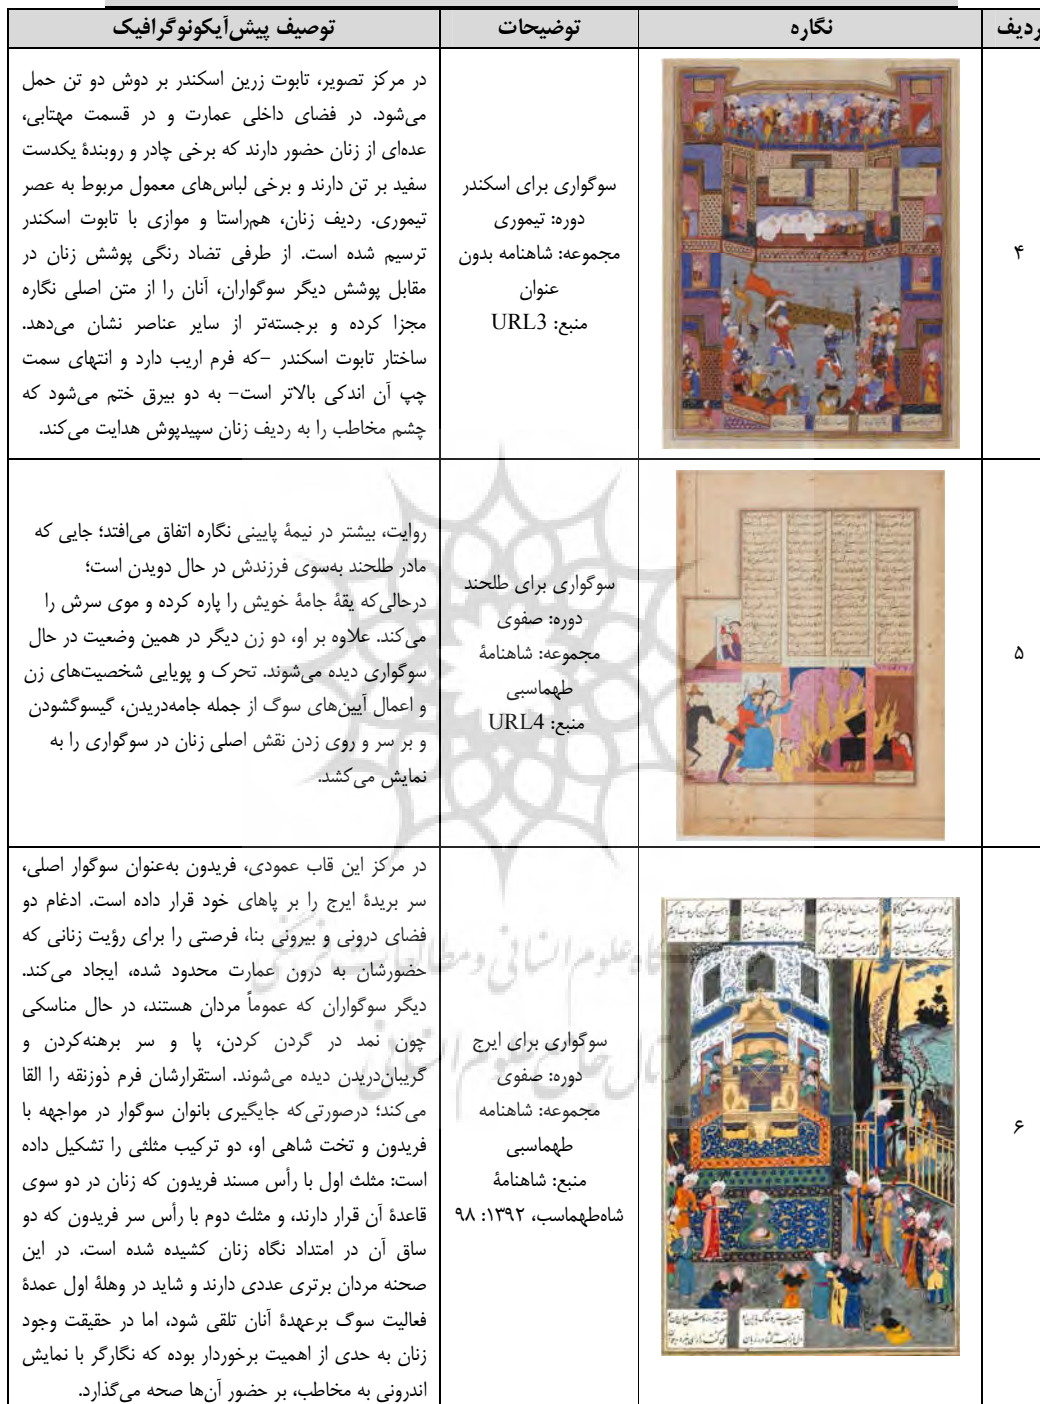 ردیف
نگاره
توضیحات
توصیف پیش‌آیکونوگرافیک
۴
سوگواری برای اسکندر
دوره: تیموری
مجموعه: شاهنامه بدون
عنوان
منبع: URL3
در مرکز تصویر، تابوت زرین اسکندر بر دوش دو تن حمل
می‌شود. در فضای داخلی عمارت و در قسمت مهتابی،
عده‌ای از زنان حضور دارند که برخی چادر و روبندهٔ یکدست
سفید بر تن دارند و برخی لباس‌های معمول مربوط به عصر
تیموری. ردیف زنان، هم‌راستا و موازی با تابوت اسکندر
ترسیم شده است. از طرفی تضاد رنگی پوشش زنان در
مقابل پوشش دیگر سوگواران، آنان را از متن اصلی نگاره
مجزا کرده و برجسته‌تر از سایر عناصر نشان می‌دهد.
ساختار تابوت اسکندر -که فرم اریب دارد و انتهای سمت
چپ آن اندکی بالاتر است- به دو بیرق ختم می‌شود که
چشم مخاطب را به ردیف زنان سپیدپوش هدایت می‌کند.
۵
سوگواری برای طلحند
دوره: صفوی
مجموعه: شاهنامهٔ
طهماسبی
منبع: URL4
روایت، بیشتر در نیمهٔ پایینی نگاره اتفاق می‌افتد؛ جایی که
مادر طلحند به‌سوی فرزندش در حال دویدن است؛
درحالی‌که یقهٔ جامهٔ خویش را پاره کرده و موی سرش را
می‌کند. علاوه بر او، دو زن دیگر در همین وضعیت در حال
سوگواری دیده می‌شوند. تحرک و پویایی شخصیت‌های زن
و اعمال آیین‌های سوگ از جمله جامه‌دریدن، گیسوگشودن
و بر سر و روی زدن نقش اصلی زنان در سوگواری را به
نمایش می‌کشد.
۶
سوگواری برای ایرج
دوره: صفوی
مجموعه: شاهنامه
طهماسبی
منبع: شاهنامهٔ
شاه‌طهماسب، ۱۳۹۲: ۹۸
در مرکز این قاب عمودی، فریدون به‌عنوان سوگوار اصلی،
سر بریدهٔ ایرج را بر پاهای خود قرار داده است. ادغام دو
فضای درونی و بیرونی بنا، فرصتی را برای رؤیت زنانی که
حضورشان به درون عمارت محدود شده، ایجاد می‌کند.
دیگر سوگواران که عموماً مردان هستند، در حال مناسکی
چون نمد در گردن کردن، پا و سر برهنه‌کردن و
گریبان‌دریدن دیده می‌شوند. استقرارشان فرم ذوزنقه را القا
می‌کند؛ درصورتی‌که جایگیری بانوان سوگوار در مواجهه با
فریدون و تخت شاهی او، دو ترکیب مثلثی را تشکیل داده
است: مثلث اول با رأس مسند فریدون که زنان در دو سوی
قاعدهٔ آن قرار دارند، و مثلث دوم با رأس سر فریدون که دو
ساق آن در امتداد نگاه زنان کشیده شده است. در این
صحنه مردان برتری عددی دارند و شاید در وهلهٔ اول عمدهٔ
فعالیت سوگ برعهدهٔ آنان تلقی شود، اما در حقیقت وجود
زنان به حدی از اهمیت برخوردار بوده که نگارگر با نمایش
اندرونی به مخاطب، بر حضور آن‌ها صحه می‌گذارد.